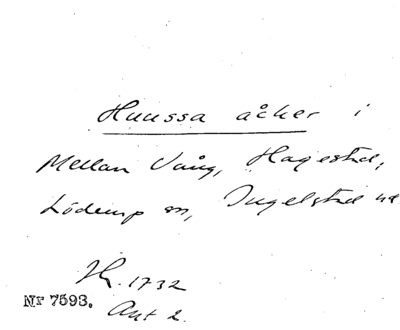 Huussa åcker i
Mellan Vång, Hagestad,
Löderup sn, Ingelstad hd
Hr. 1732
Nr 7593. Akt 2.